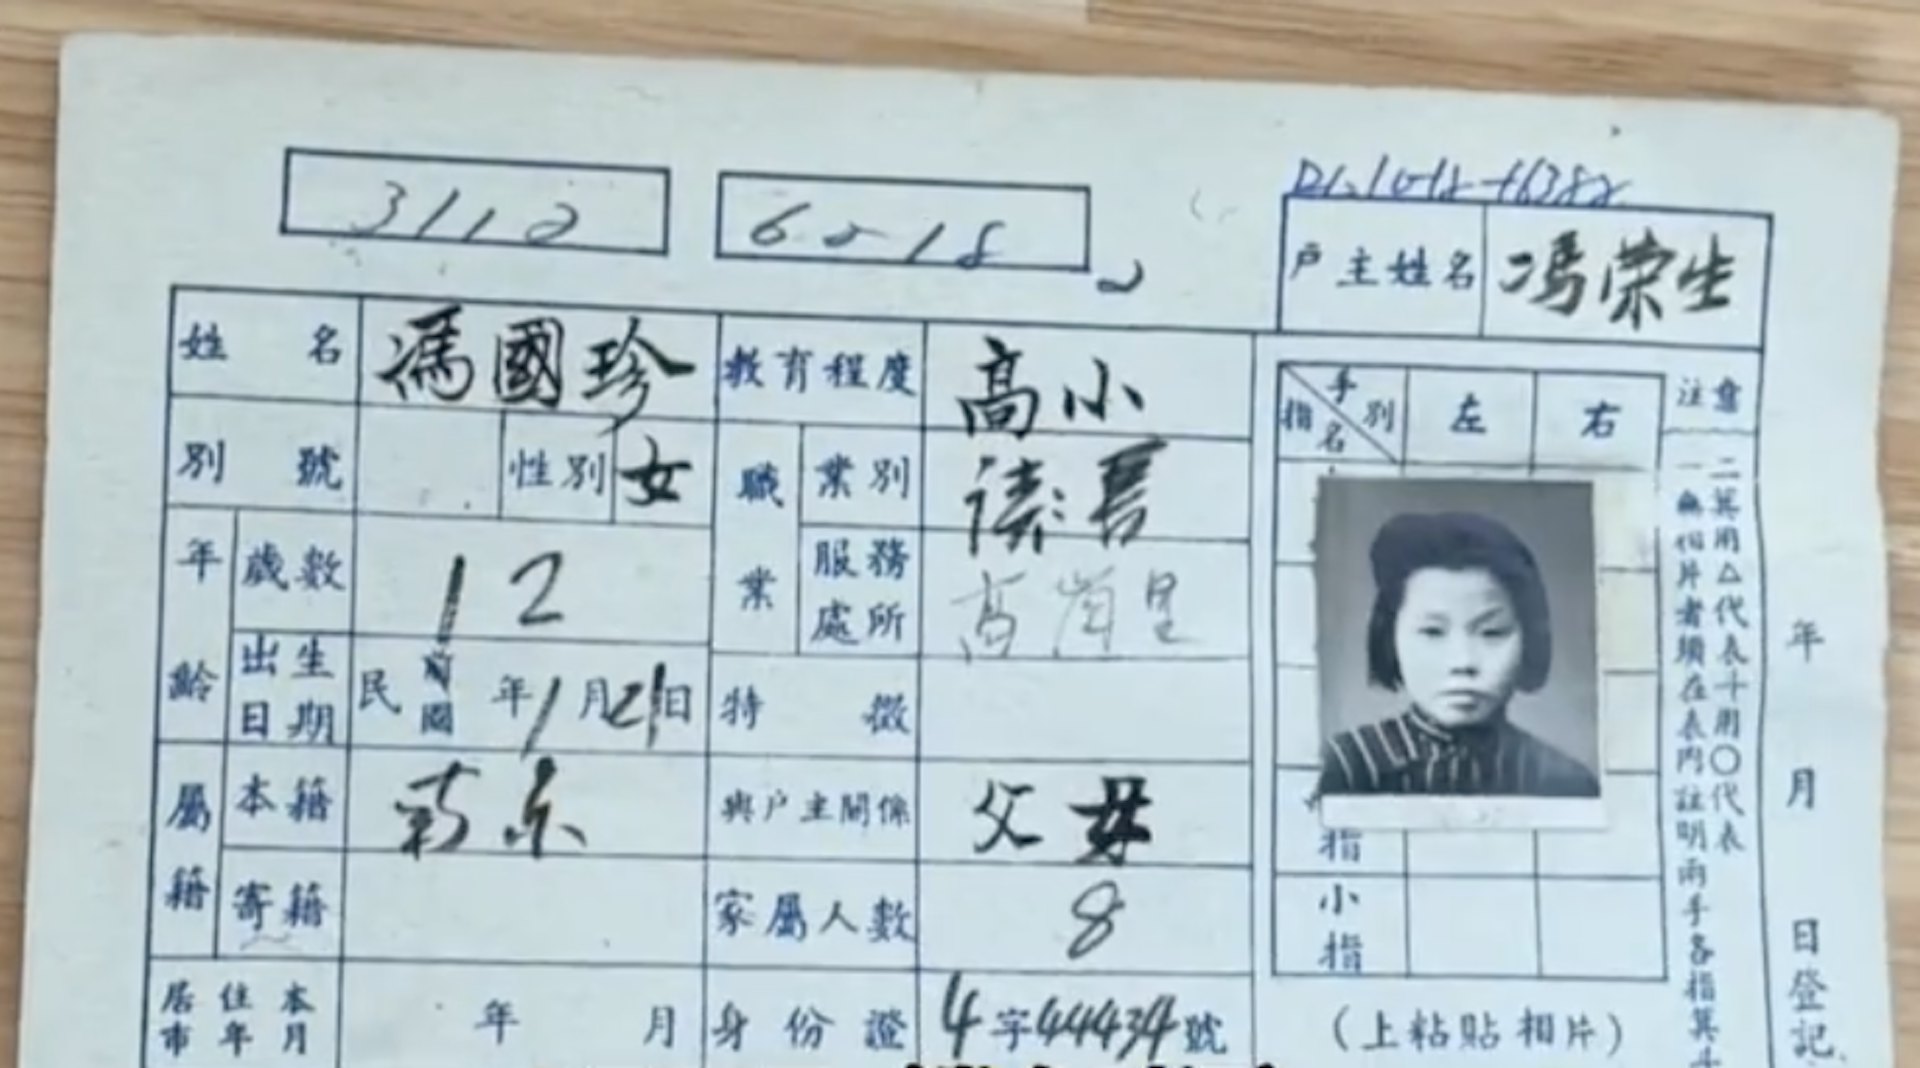 3112
6018
户主姓名 馮荣生
姓名 馮國珍 教育程度 高小
別號 性別 女 職業 業別 读書
年齡 歲數 12 服務處所
出生日期 民前國 年1月21日 特徵
屬籍 本籍 南京 與户主關係 父母
寄籍 家屬人數 8
居住本市年月 年 月 身份證 4字44434號
手別 指名 左 右
指
小指
(上粘貼相片)
注意
一無相片者須在表内註明兩手各指箕斗
二箕用△代表斗用〇代表
年 月 日登記